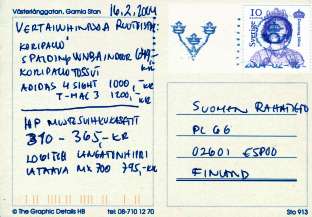 Västerlånggatan, Gamla Stan
16.2.2004
VERTAILUHINTOJA RUOTSISTA:
KORIPALLO
SPALDING WNBA INDOOR 649,-KR
KORIPALLOTOSSUT
ADIDAS 4 SIGHT 1000,-KR
T-MAC 3 1200,-KR
HP MUSTESUIHKUKASETTI
310 - 365,-KR
LOGITECH LANGATON HIIRI
LATTAVA MX 700 795,-KR
© The Graphic Details HB
tel: 08-710 12 70
10
Sverige
SUOMEN RAHATIETO
PL 66
02601 ESPOO
FINLAND
Sto 913